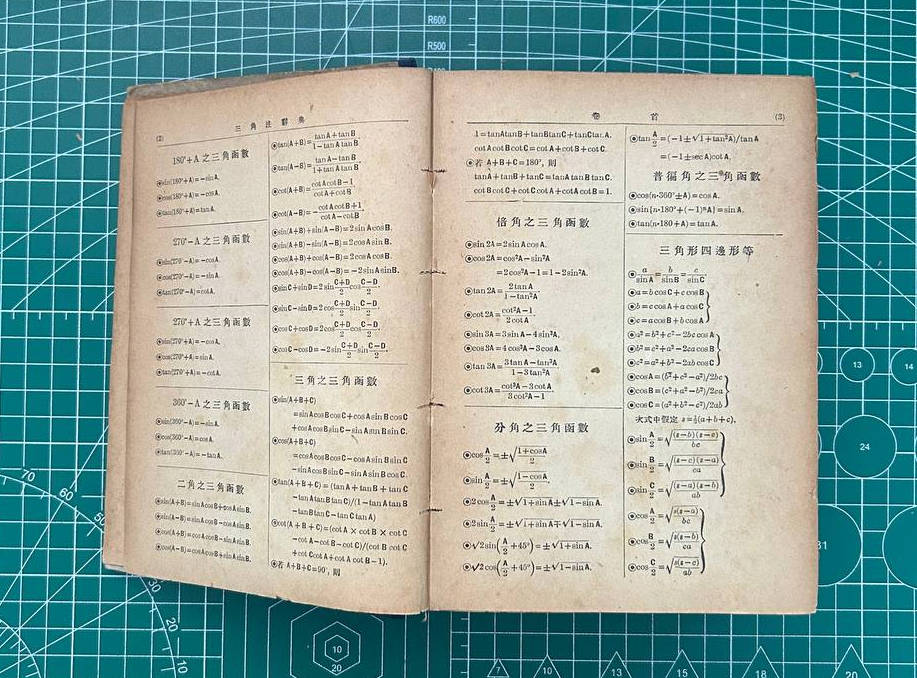 (2)
三角法辭典
180°+A 之三角函數
⦿sin(180°+A)=-sinA.
⦿cos(180°+A)=-cosA.
⦿tan(180°+A)=tanA.
270°-A 之三角函數
⦿sin(270°-A)=-cosA.
⦿cos(270°-A)=-sinA.
⦿tan(270°-A)=cotA.
270°+A 之三角函數
⦿sin(270°+A)=-cosA.
⦿cos(270°+A)=sinA.
⦿tan(270°+A)=-cotA.
360°-A 之三角函數
⦿sin(360°-A)=-sinA.
⦿cos(360°-A)=cosA.
⦿tan(360°-A)=-tanA.
二角之三角函數
⦿sin(A+B)=sinAcosB+cosAsinB.
⦿sin(A-B)=sinAcosB-cosAsinB.
⦿cos(A+B)=cosAcosB-sinAsinB.
⦿cos(A-B)=cosAcosB+sinAsinB.
⦿tan(A+B)=(tanA+tanB)/(1-tanAtanB).
⦿tan(A-B)=(tanA-tanB)/(1+tanAtanB).
⦿cot(A+B)=(cotAcotB-1)/(cotA+cotB).
⦿cot(A-B)=-(cotAcotB+1)/(cotA-cotB).
⦿sin(A+B)+sin(A-B)=2sinAcosB.
⦿sin(A+B)-sin(A-B)=2cosAsinB.
⦿cos(A+B)+cos(A-B)=2cosAcosB.
⦿cos(A+B)-cos(A-B)=-2sinAsinB.
⦿sinC+sinD=2sin(C+D)/2 cos(C-D)/2.
⦿sinC-sinD=2cos(C+D)/2 sin(C-D)/2.
⦿cosC+cosD=2cos(C+D)/2 cos(C-D)/2.
⦿cosC-cosD=-2sin(C+D)/2 sin(C-D)/2.
三角之三角函數
⦿sin(A+B+C)
=sinAcosBcosC+cosAsinBcosC
+cosAcosBsinC-sinAsinBsinC.
⦿cos(A+B+C)
=cosAcosBcosC-cosAsinBsinC
-sinAcosBsinC-sinAsinBcosC.
⦿tan(A+B+C)=(tanA+tanB+tanC
-tanAtanBtanC)/(1-tanAtanB
-tanBtanC-tanCtanA)
⦿cot(A+B+C)=(cotA×cotB×cotC
-cotA-cotB-cotC)/(cotBcotC
+cotCcotA+cotAcotB-1).
⦿若 A+B+C=90°, 則
卷首
(3)
1=tanAtanB+tanBtanC+tanCtanA.
cotAcotBcotC=cotA+cotB+cotC.
⦿若 A+B+C=180°, 則
tanA+tanB+tanC=tanAtanBtanC.
cotBcotC+cotCcotA+cotAcotB=1.
倍角之三角函數
⦿sin2A=2sinAcosA.
⦿cos2A=cos²A-sin²A
=2cos²A-1=1-2sin²A.
⦿tan2A=2tanA/(1-tan²A)
⦿cot2A=(cot²A-1)/(2cotA).
⦿sin3A=3sinA-4sin³A.
⦿cos3A=4cos³A-3cosA.
⦿tan3A=(3tanA-tan³A)/(1-3tan²A)
⦿cot3A=(cot³A-3cotA)/(3cot²A-1)
分角之三角函數
⦿cos A/2=±√((1+cosA)/2)
⦿sin A/2=±√((1-cosA)/2).
⦿2cos A/2=±√(1+sinA)±√(1-sinA).
⦿2sin A/2=±√(1+sinA)∓√(1-sinA).
⦿√2sin(A/2+45°)=±√(1+sinA).
⦿√2cos(A/2+45°)=±√(1-sinA).
⦿tan A/2=(-1±√(1+tan²A))/tanA
=(-1±secA)cotA.
普徧角之三角函數
⦿cos(n·360°±A)=cosA.
⦿sin{n·180°+(-1)ⁿA}=sinA.
⦿tan(n·180+A)=tanA.
三角形四邊形等
⦿a/sinA=b/sinB=c/sinC
⦿a=bcosC+ccosB
⦿b=ccosA+acosC
⦿c=acosB+bcosA
⦿a²=b²+c²-2bccosA
⦿b²=c²+a²-2cacosB
⦿c²=a²+b²-2abcosC
⦿cosA=(b²+c²-a²)/2bc
⦿cosB=(c²+a²-b²)/2ca
⦿cosC=(a²+b²-c²)/2ab
次式中假定 s=½(a+b+c),
⦿sin A/2=√((s-b)(s-c)/bc)
⦿sin B/2=√((s-c)(s-a)/ca)
⦿sin C/2=√((s-a)(s-b)/ab)
⦿cos A/2=√(s(s-a)/bc)
⦿cos B/2=√(s(s-b)/ca)
⦿cos C/2=√(s(s-c)/ab)
R600
R500
70
60
50
30
20
10
10
20
13
14
24
31
7
10
13
15
18
20